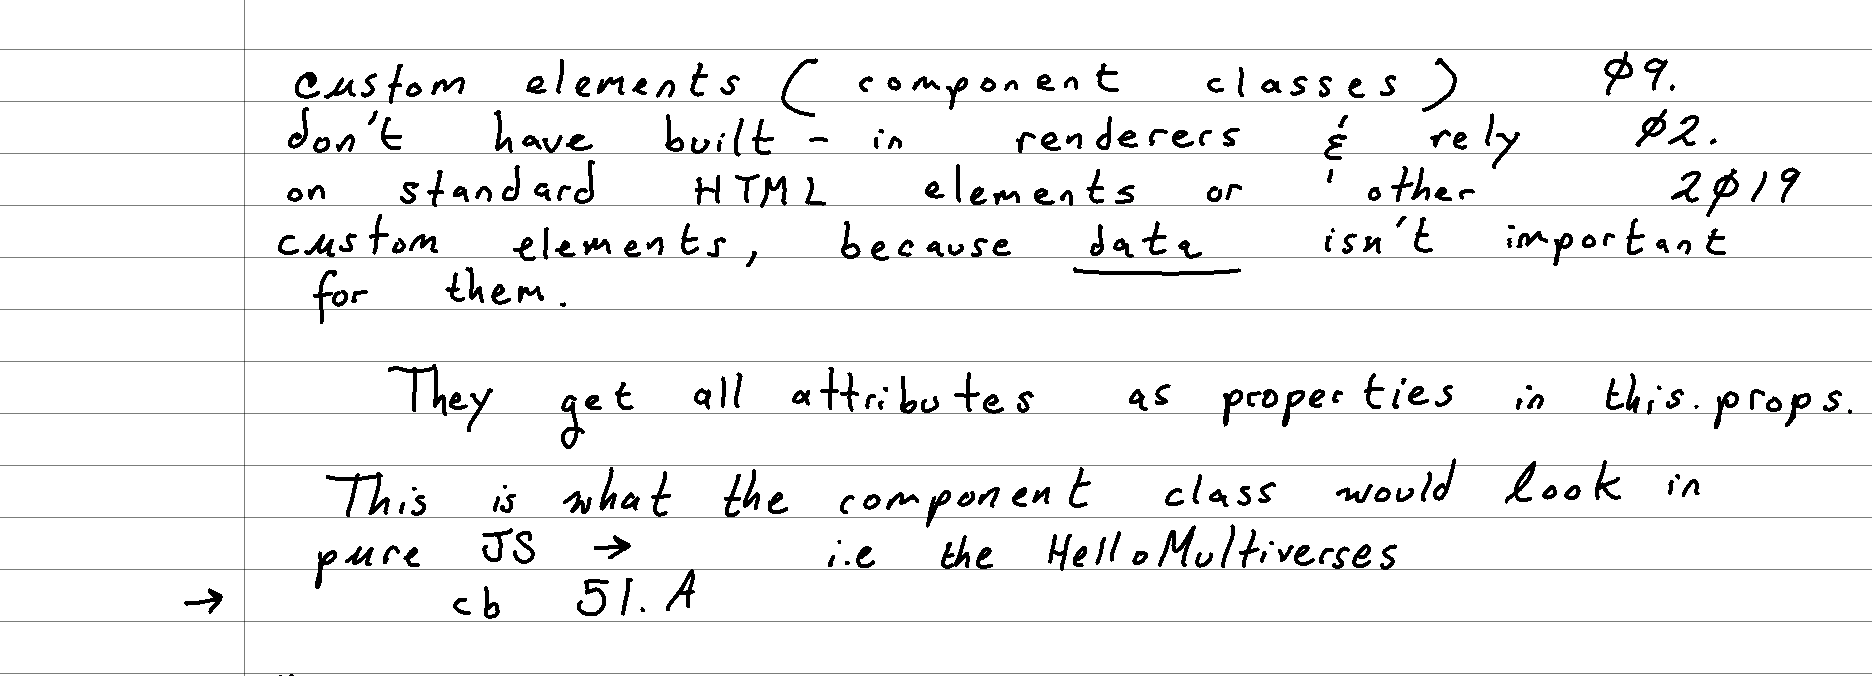 custom elements (component classes) Ø9.
don't have built-in renderers & rely Ø2.
on standard HTML elements or other 2Ø19
custom elements, because data isn't important
for them.
They get all attributes as properties in this.props.
This is what the component class would look in
pure JS → i.e the HelloMultiverses
→ cb 51.A